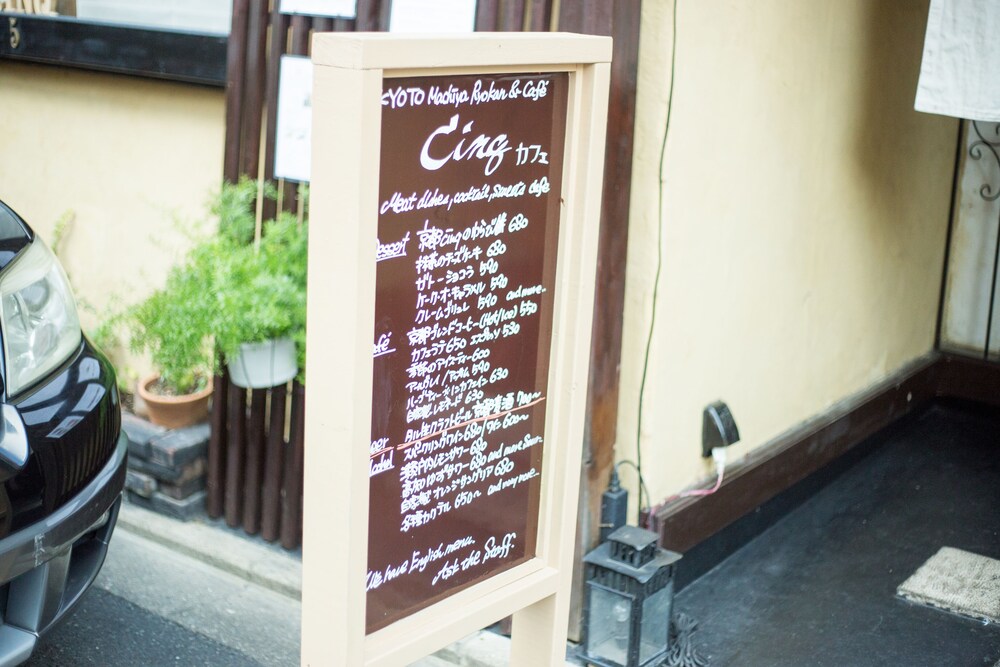 KYOTO Machiya Ryokan & Café
Cinq カフェ
Meat dishes, cocktail, sweets cafe
Dessert 京都Cinqのわらび餅 680
抹茶のチーズケーキ 680
ガトーショコラ 590
ケーク・オ・キャラメル 590
クレームブリュレ 590 and more..
Café 京都ブレンドコーヒー(Hot/Ice) 550
カフェラテ 650 エスプレッソ 530
のアイスティー 600
アールグレイ/アッサム 590
ハーブティー ノンカフェイン 630
自家製レモネード 630
Beer タル生クラフトビール 700〜
Alcohol スパークリングワイン 680/ワイン 600〜
レモンサワー 680
高知ゆずサワー 680 and more Sour..
自家製オレンジサングリア 680
各種カクテル 650〜 and many more...
We have English menu.
Ask the Staff.